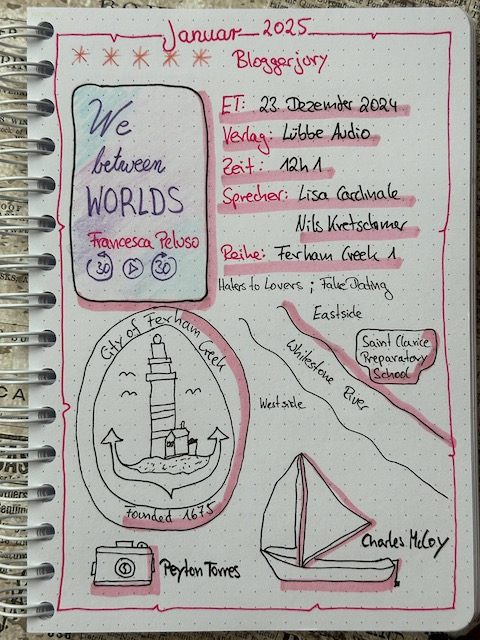 Januar 2025
Bloggerjury
We
between
WORLDS
Francesca Peluso
30 30
ET: 23. Dezember 2024
Verlag: Lübbe Audio
Zeit: 12h 1
Sprecher: Lisa Cardinale
Nils Kretschmer
Reihe: Ferham Creek 1
Haters to Lovers ; Fake Dating
City of Ferham Creek
Founded 1675
Eastside
Whitestone River
Westside
Saint Clarice
Preparatory
School
Peyton Torres
Charles McCoy